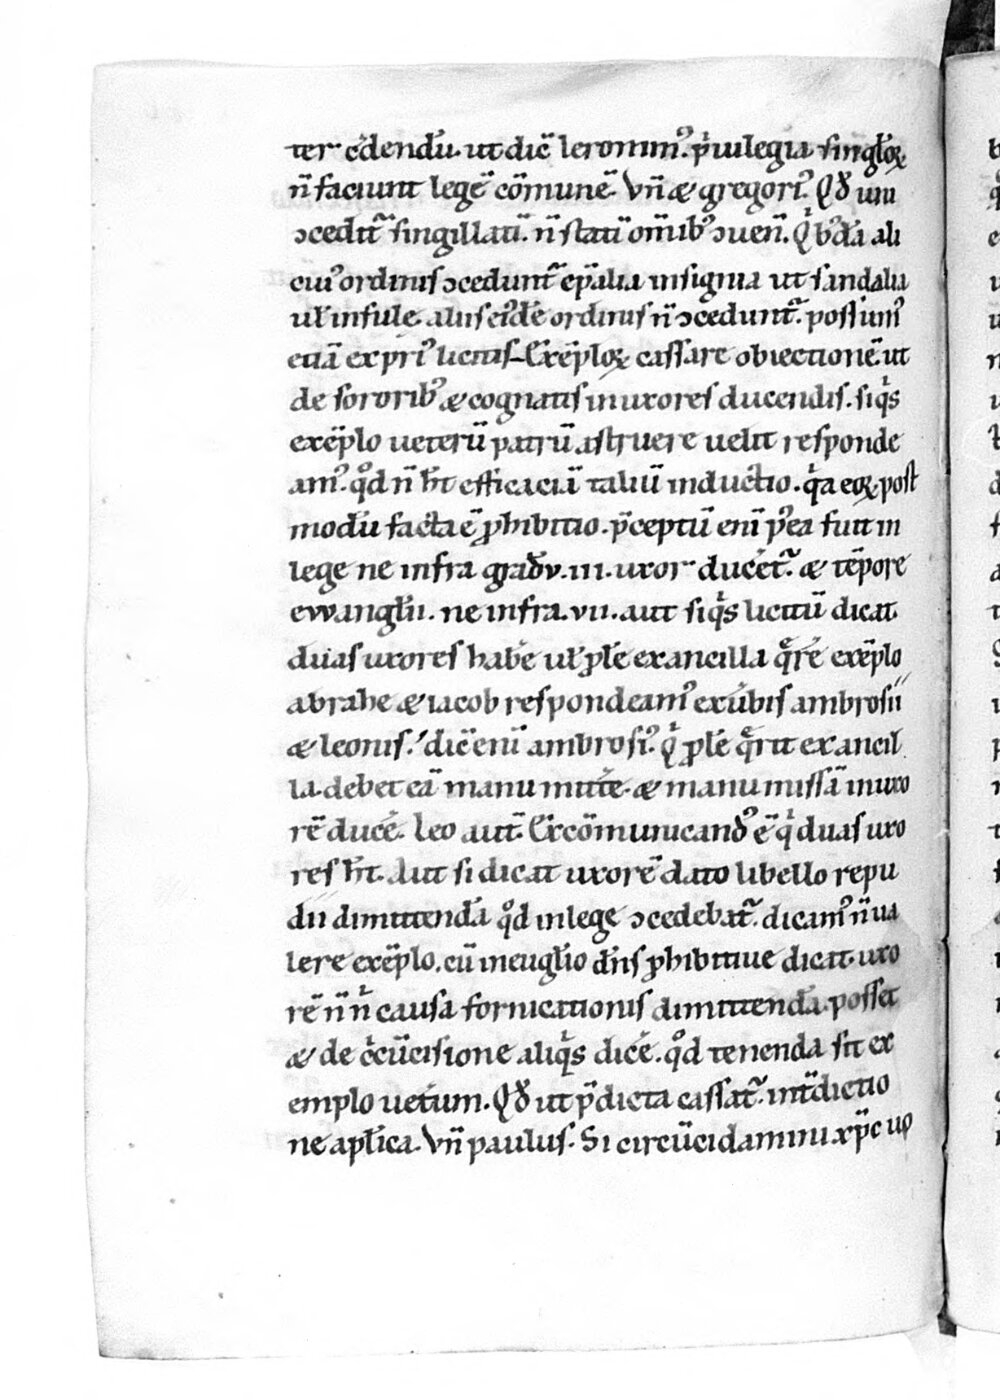 ter c̄dendū. ut dic̄ Ieronim᷒. p͛uilegia singl̄oꝝ
n̄ faciunt legē cōmunē. Vn̄ ⁊ gregori᷒. Qd̄ uni
ꝯcedit᷑ singillati. n̄ stati om̄ib᷒ ꝯuen̄. Qͥb᷒dā ali
cui᷒ ordinis ꝯcedunt᷑ ep̄alia insignia ut sandalia
ul̄ infule. aliis ei᷒dē ordinis n̄ ꝯcedunt᷑. possum᷒
etiā ex pri᷒ licitis. Exēploꝝ cassare obiectionē ut
de sororib᷒ ⁊ cognatis in uxores ducendis. siqͥs
exēplo ueterū patrū astruere uelit responde
am᷒. qͦd n̄ h̄t efficaciā taliū inductio. qͥa eoꝝ post
modū facta ē ꝓhibitio. p̄ceptū eni p᷒ea fuit in
lege ne infra gradū .iii. uxor ducet᷑. ⁊ tēpore
ewangl̄ii. ne infra .vii. aut siqͥs licitū dicat
duas uxores habe͛ ul̄ ꝓlē ex ancilla qͣre͛ exēplo
abrahe ⁊ iacob respondeam᷒ ex ūbis ambrosii
⁊ leonis. dic̄ eni ambrosi᷒. Qͥ ꝓlē qͣrit ex ancil
la. debet eā manu mitte͛. ⁊ manu missā in uxo
rē duce͛. Leo aut̄. Excōmunicand᷒ ē qͥ duas uxo
res h̄t. Aut si dicat uxorē dato libello repu
dii dimittendā qͦd in lege ꝯcedebat᷑. dicam᷒ n̄ ua
lere exēplo. cū in eugl̄io dn̄s ꝓhibitiue dicat. uxo
rē n̄ nͥ causa fornicationis dimittendā. posset
⁊ de c͛cūcisione aliqͥs dice͛. qͦd tenenda sit ex
emplo uet͛um. Qd̄ ut p̄dicta cassat᷑. int᷑dictio
ne apl̄ica. Vn̄ paulus. Si circūcidamini xp̄c uo